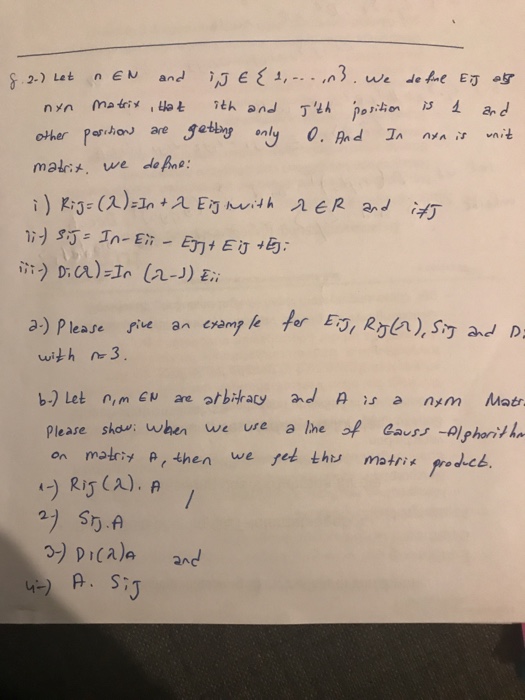 8 2-) Let n ∈ N and i,J ∈ { 1,---,n}. we define EiJ as
nxn matrix, that ith and J'th position is 1 and
other position are getting only 0. And In nxn is unit
matrix. we define:
i) Rij=(λ)=In + λ Eij with λ ∈ R and i≠J
ii-) Sij = In - Eii - Ejj + Eij + Eji
iii-) Di(λ)=In (λ-1) Eii
a-) Please give an example for Eij, Rij(λ), Sij and Di
with n=3.
b-) Let n,m ∈ N are arbitracy and A is a nxm Matr
Please show: when we use a line of Gauss-Alphorithm
on matrix A, then we get this matrix product.
1-) Rij(λ). A
2-) Sij.A
3-) Di(λ)A and
4-) A. Sij